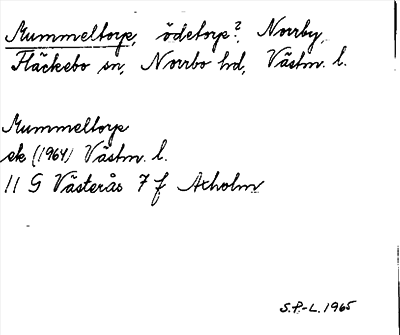 Mummeltorp, ödetorp?, Norrby,
Fläckebo sn, Norrbo hd, Västm. l.
Mummeltorp
ek (1964) Västm. l.
11 G Västerås 7 f Axholm
S.P-L. 1965